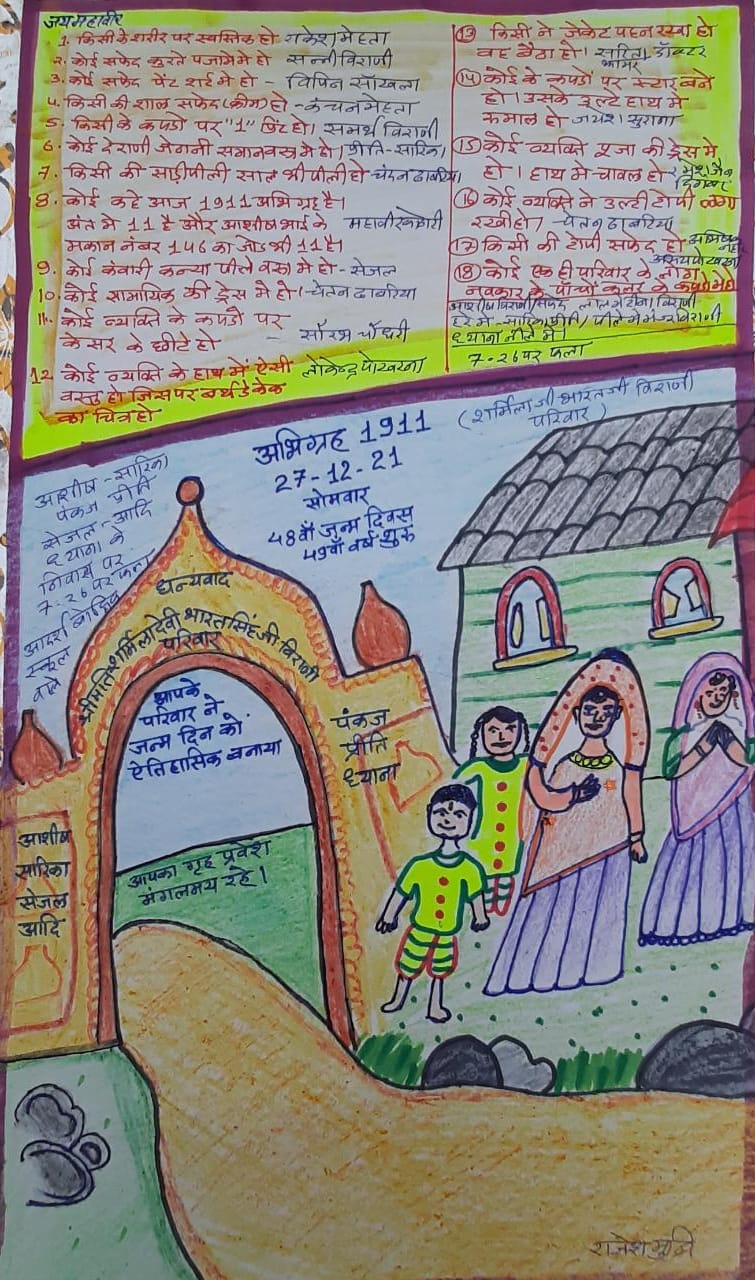 जय महावीर
1. किसी के शरीर पर स्वस्तिक हो राकेश मेहता
2. कोई सफेद कुरते पजामे मे हो - सन्नी विराणी
3. कोई सफेद पेंट शर्ट मे हो - विपिन साँखला
4. किसी की शाल सफेद (क्रीम) हो - कंचन मेहता
5. किसी के कपडो पर "1" प्रिंट हो। समर्थ विराणी
6. कोई देराणी जेठानी समान वस्त्र मे हो। प्रीति - सारिका
7. किसी की साडी पीली साल भी पीली हो - चंदन छाबरिया
8. कोई कहे आज 1911 अभिग्रह है।
अंत मे 11 है और आशीष भाई के
मकान नंबर 146 का जोड भी 11 है।
9. कोई कंवारी कन्या पीले वस्त्र मे हो - सेजल
10. कोई सामायिक की ड्रेस मे हो। - चेतन छाबरिया
11. कोई व्यक्ति के कपडो पर
केसर के छींटे हो - सौरभ चौधरी
12. कोई व्यक्ति के हाथ में ऐसी लोकेन्द्र पोखरना
वस्तु हो जिस पर बर्थ डे केक
का चित्र हो
13 किसी ने जेकेट पहन रखा हो
वह बैठा हो। सरिता डॉक्टर
14 कोई के कपडो पर स्टार बने
हो। उसके उल्टे हाथ मे
रुमाल हो जयश्री सुराणा
15 कोई व्यक्ति पूजा की ड्रेस मे
हो। हाथ मे चावल हो
16 कोई व्यक्ति ने उल्टी टोपी लगा
रखी हो। - चेतन छाबरिया
17 किसी की टोपी सफेद हो
18 कोई एक ही परिवार के लोग
नवकार के पाँचों कलर के कपडो मे हो
हरे मे - सारिका प्रीति / पीले मे
ध्याना नीले मे।
7-26 पर फला
अभिग्रह 1911
27-12-21
सोमवार
48वाँ जन्म दिवस
49वाँ वर्ष शुरु
(शर्मिला जी भारत जी विराणी
परिवार)
आशीष - सारिका
पंकज प्रीति
सेजल - आदि
ध्याना के
निवास पर
7-26 पर फला
स्कूल
वाले
धन्यवाद
श्रीमति शर्मिला देवी भारतसिंह जी विराणी
परिवार
आपके
परिवार ने
जन्म दिन को
ऐतिहासिक बनाया
आपका गृह प्रवेश
मंगलमय रहे।
पंकज
प्रीति
ध्याना
आशीष
सारिका
सेजल
आदि
राजेश मुनि